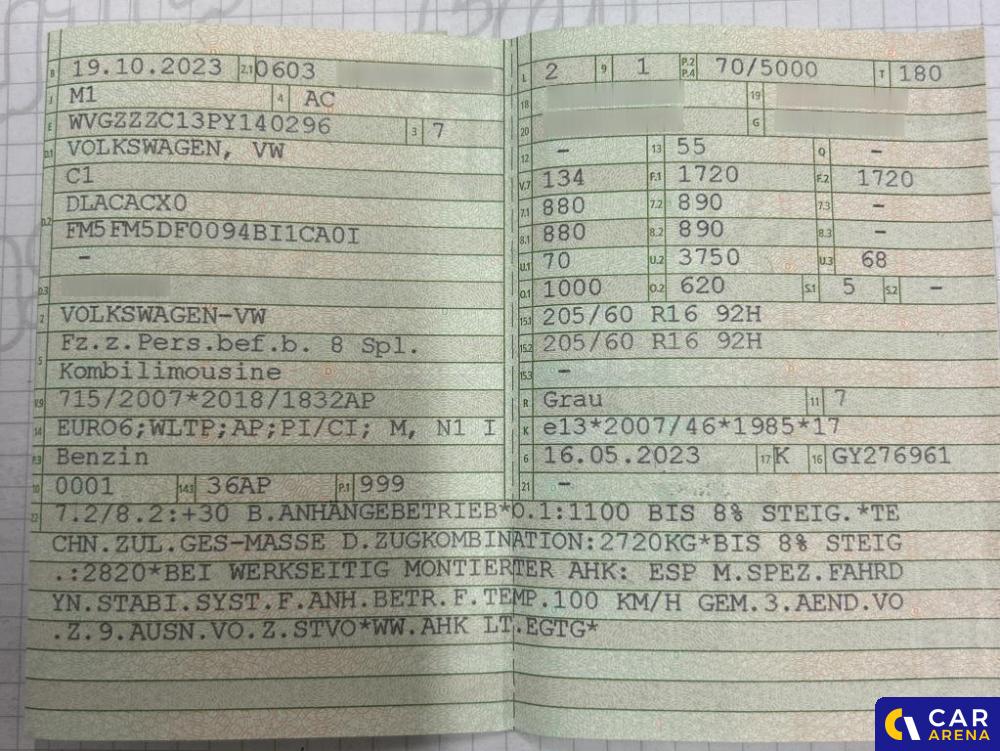 B 19.10.2023 2.1 0603
J M1 4 AC
E WVGZZZC13PY140296 3 7
D.1 VOLKSWAGEN, VW
C1
D.2 DLACACX0
FM5FM5DF0094BI1CA0I
-
D.3
2 VOLKSWAGEN-VW
5 Fz.z.Pers.bef.b. 8 Spl.
Kombilimousine
V.9 715/2007*2018/1832AP
14 EURO6;WLTP;AP;PI/CI; M, N1 I
P.3 Benzin
10 0001 14.1 36AP P.1 999
L 2 9 1 P.2 P.4 70/5000 T 180
18 19
20 G
12 - 13 55 Q -
V.7 134 F.1 1720 F.2 1720
7.1 880 7.2 890 7.3 -
8.1 880 8.2 890 8.3 -
U.1 70 U.2 3750 U.3 68
O.1 1000 O.2 620 S.1 5 S.2 -
15.1 205/60 R16 92H
15.2 205/60 R16 92H
15.3 -
R Grau 11 7
K e13*2007/46*1985*17
6 16.05.2023 17 K 16 GY276961
21 -
22 7.2/8.2:+30 B.ANHÄNGEBETRIEB*O.1:1100 BIS 8% STEIG.*TE
CHN.ZUL.GES-MASSE D.ZUGKOMBINATION:2720KG*BIS 8% STEIG
.:2820*BEI WERKSEITIG MONTIERTER AHK: ESP M.SPEZ.FAHRD
YN.STABI.SYST.F.ANH.BETR.F.TEMP.100 KM/H GEM.3.AEND.VO
.Z.9.AUSN.VO.Z.STVO*WW.AHK LT.EGTG*
CAR
ARENA